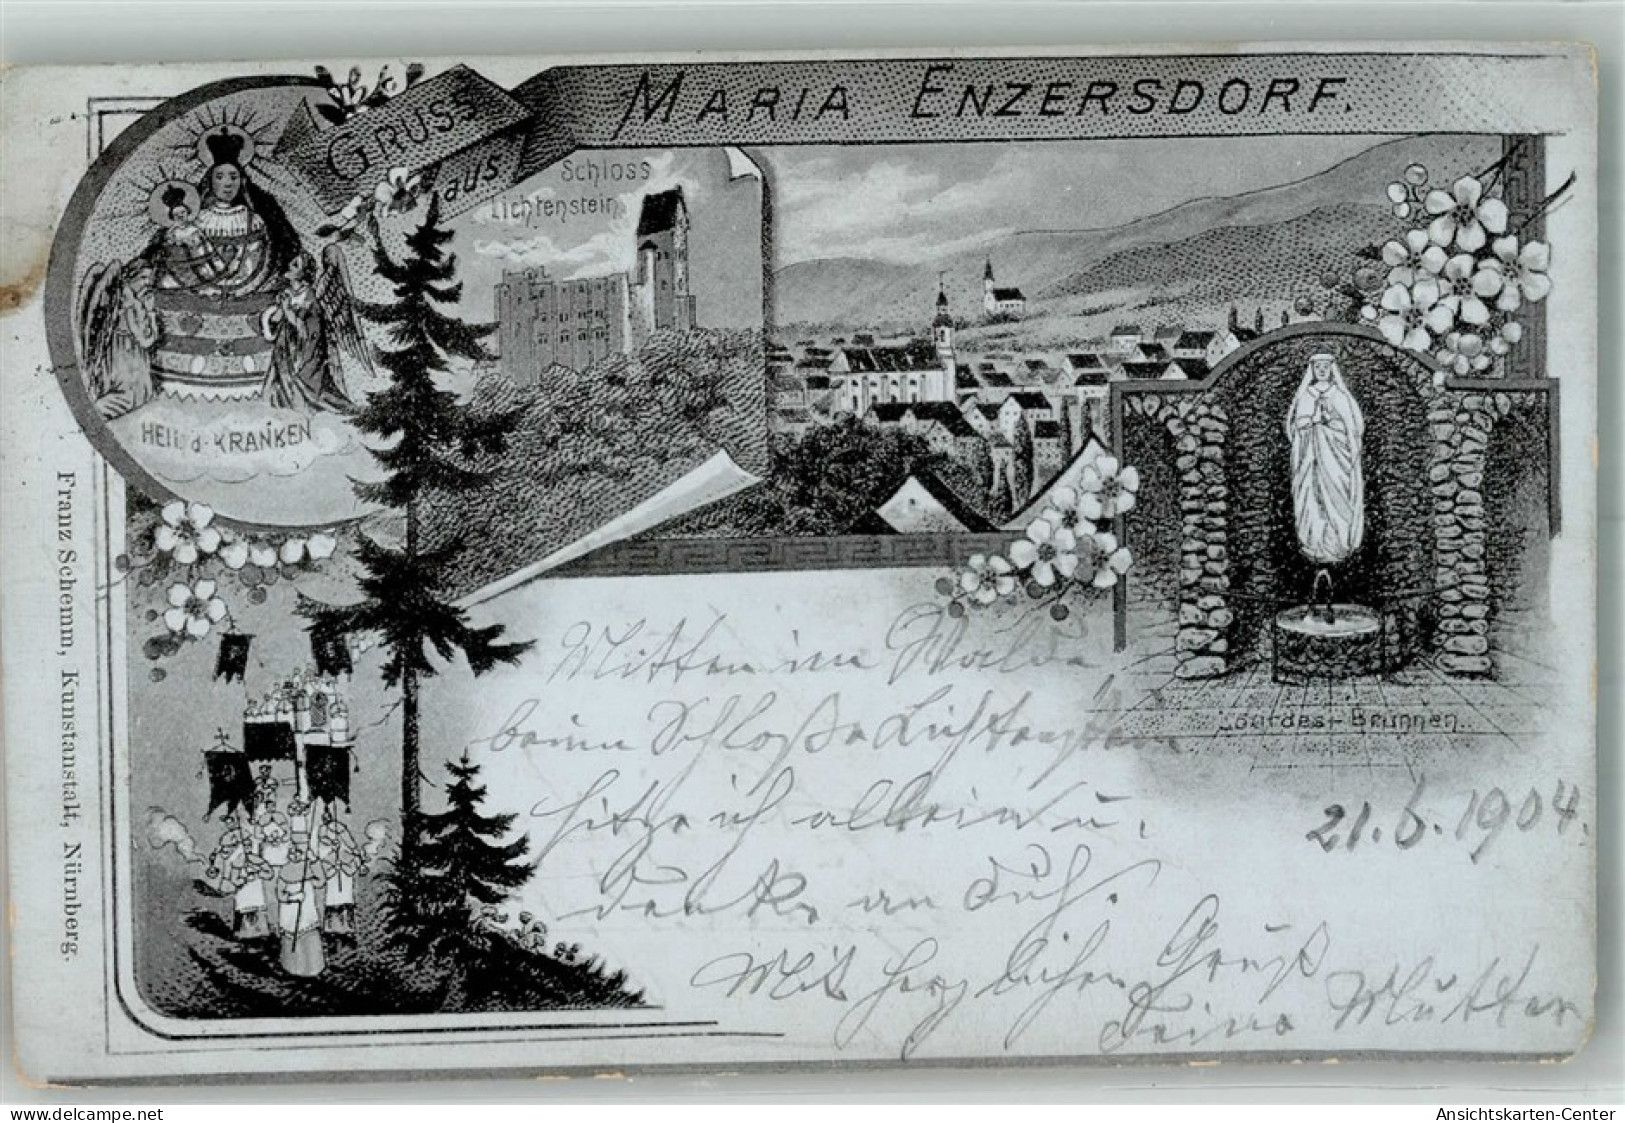 GRUSS
aus
MARIA ENZERSDORF.
Schloss
Lichtenstein
HEIL d. KRANKEN
Lourdes-Brunnen.
Franz Schemm, Kunstanstalt, Nürnberg.
Mitten im Walde
beim Schloße Lichtenstein
sitze ich allein u.
denke an Dich.
Mit herzlichen Gruß
Deine Mutter
21.6.1904.
oldthing.com
Ansichtskarten-Center